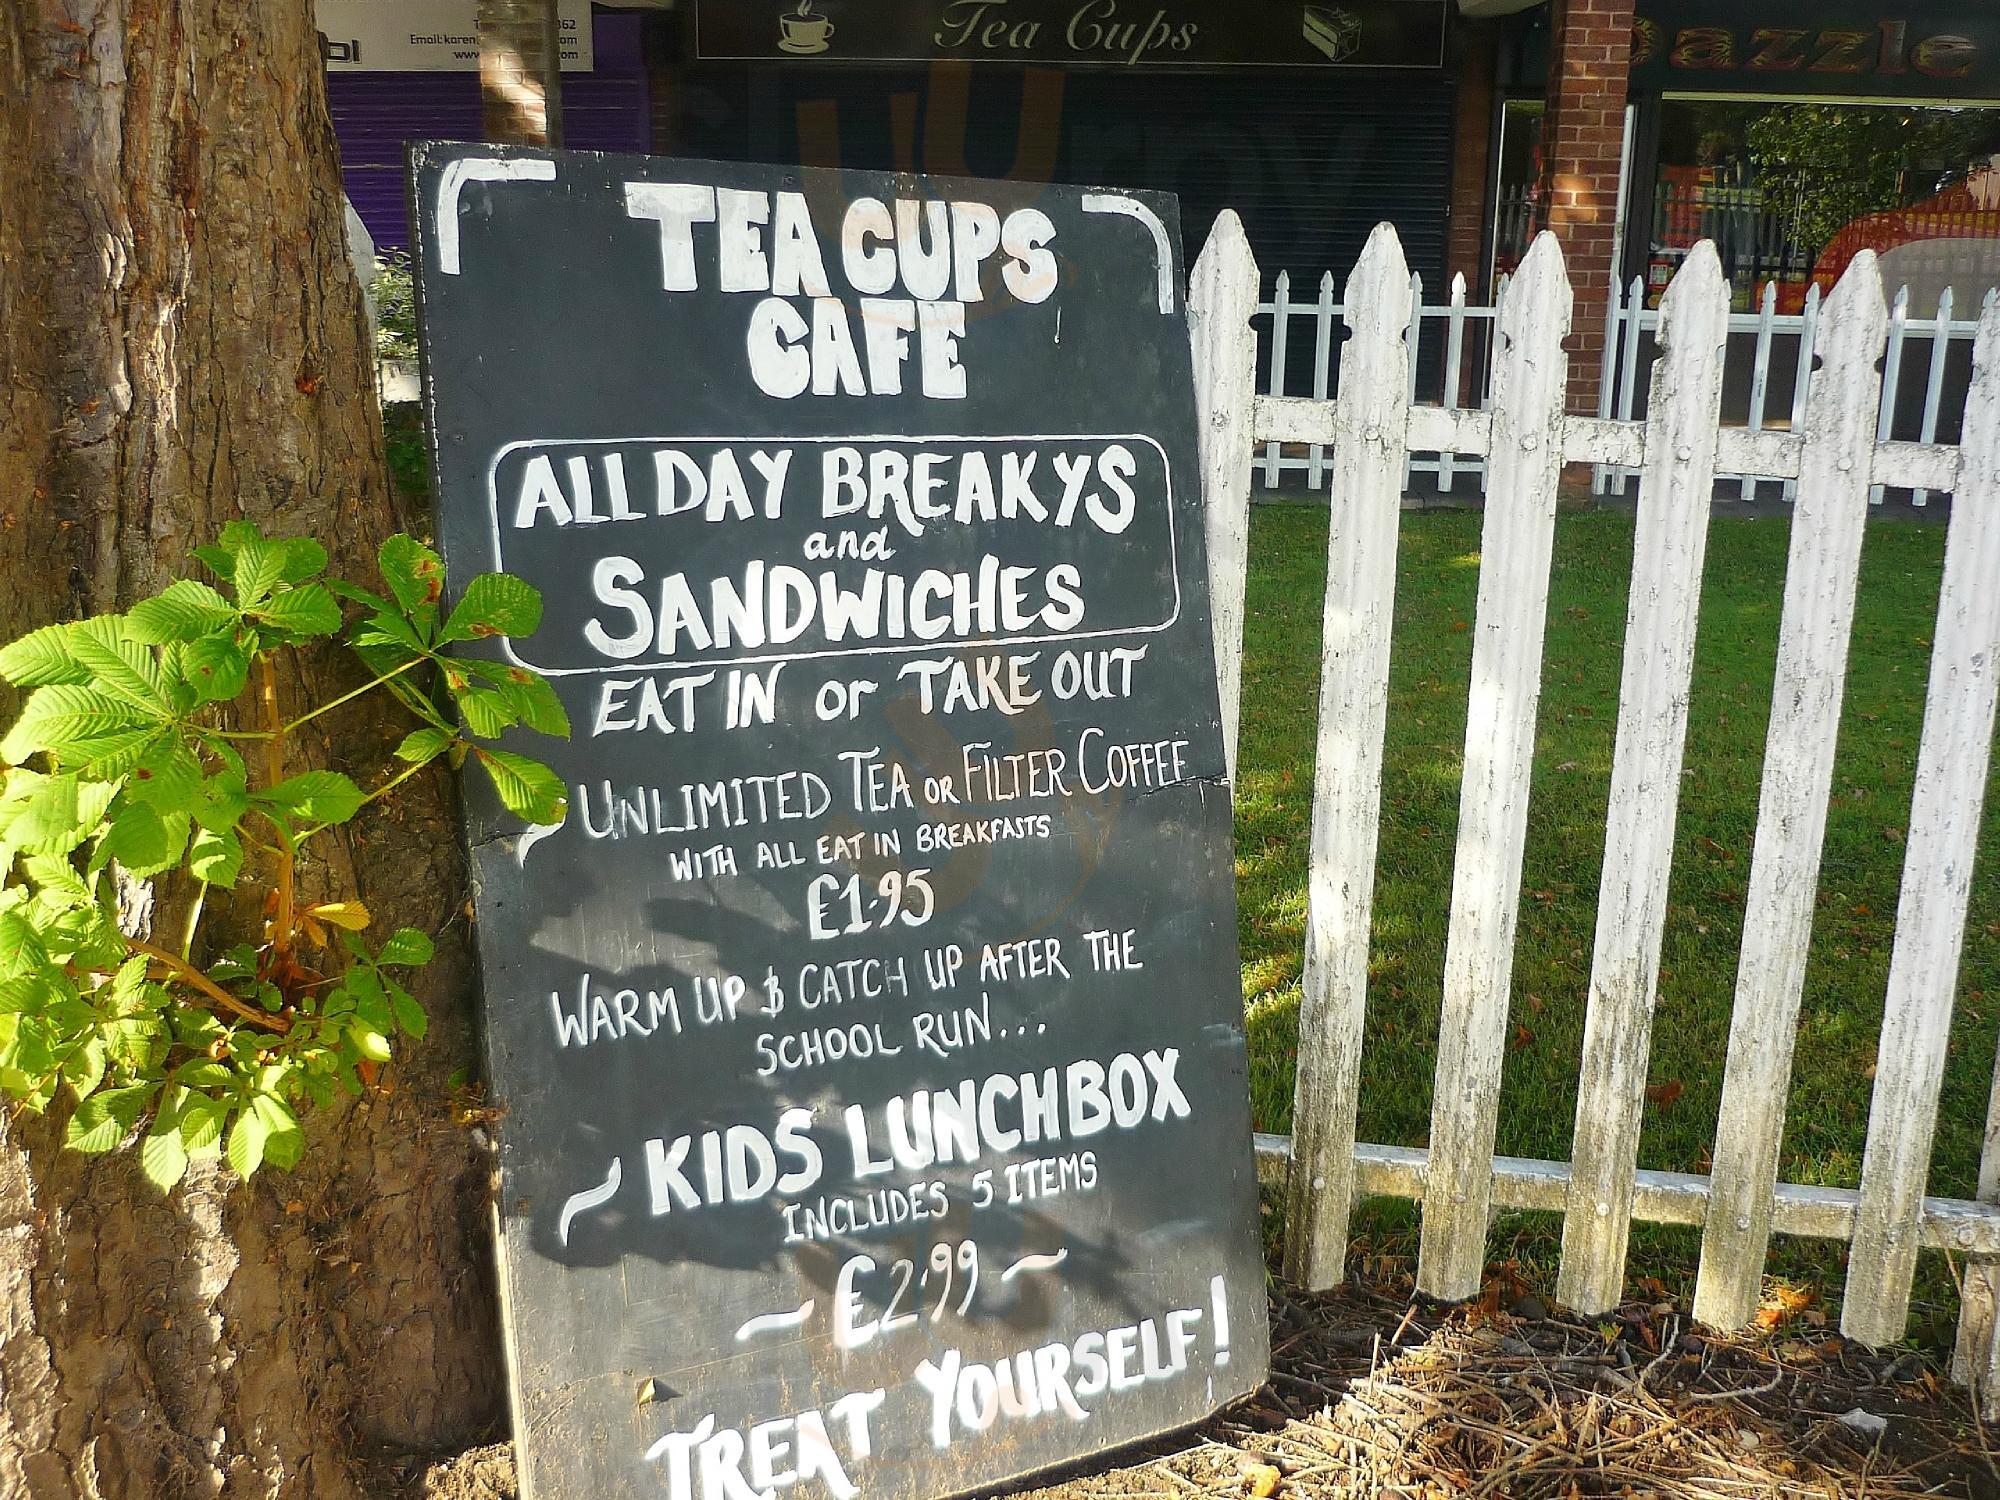 362
Email:karen
om
www
om
Tea Cups
Dazzle
TEA CUPS
CAFE
ALL DAY BREAKYS
and
SANDWICHES
EAT IN or TAKE OUT
UNLIMITED TEA OR FILTER COFFEE
WITH ALL EAT IN BREAKFASTS
£1.95
WARM UP & CATCH UP AFTER THE
SCHOOL RUN...
~ KIDS LUNCHBOX
INCLUDES 5 ITEMS
~ £2.99 ~
TREAT YOURSELF!